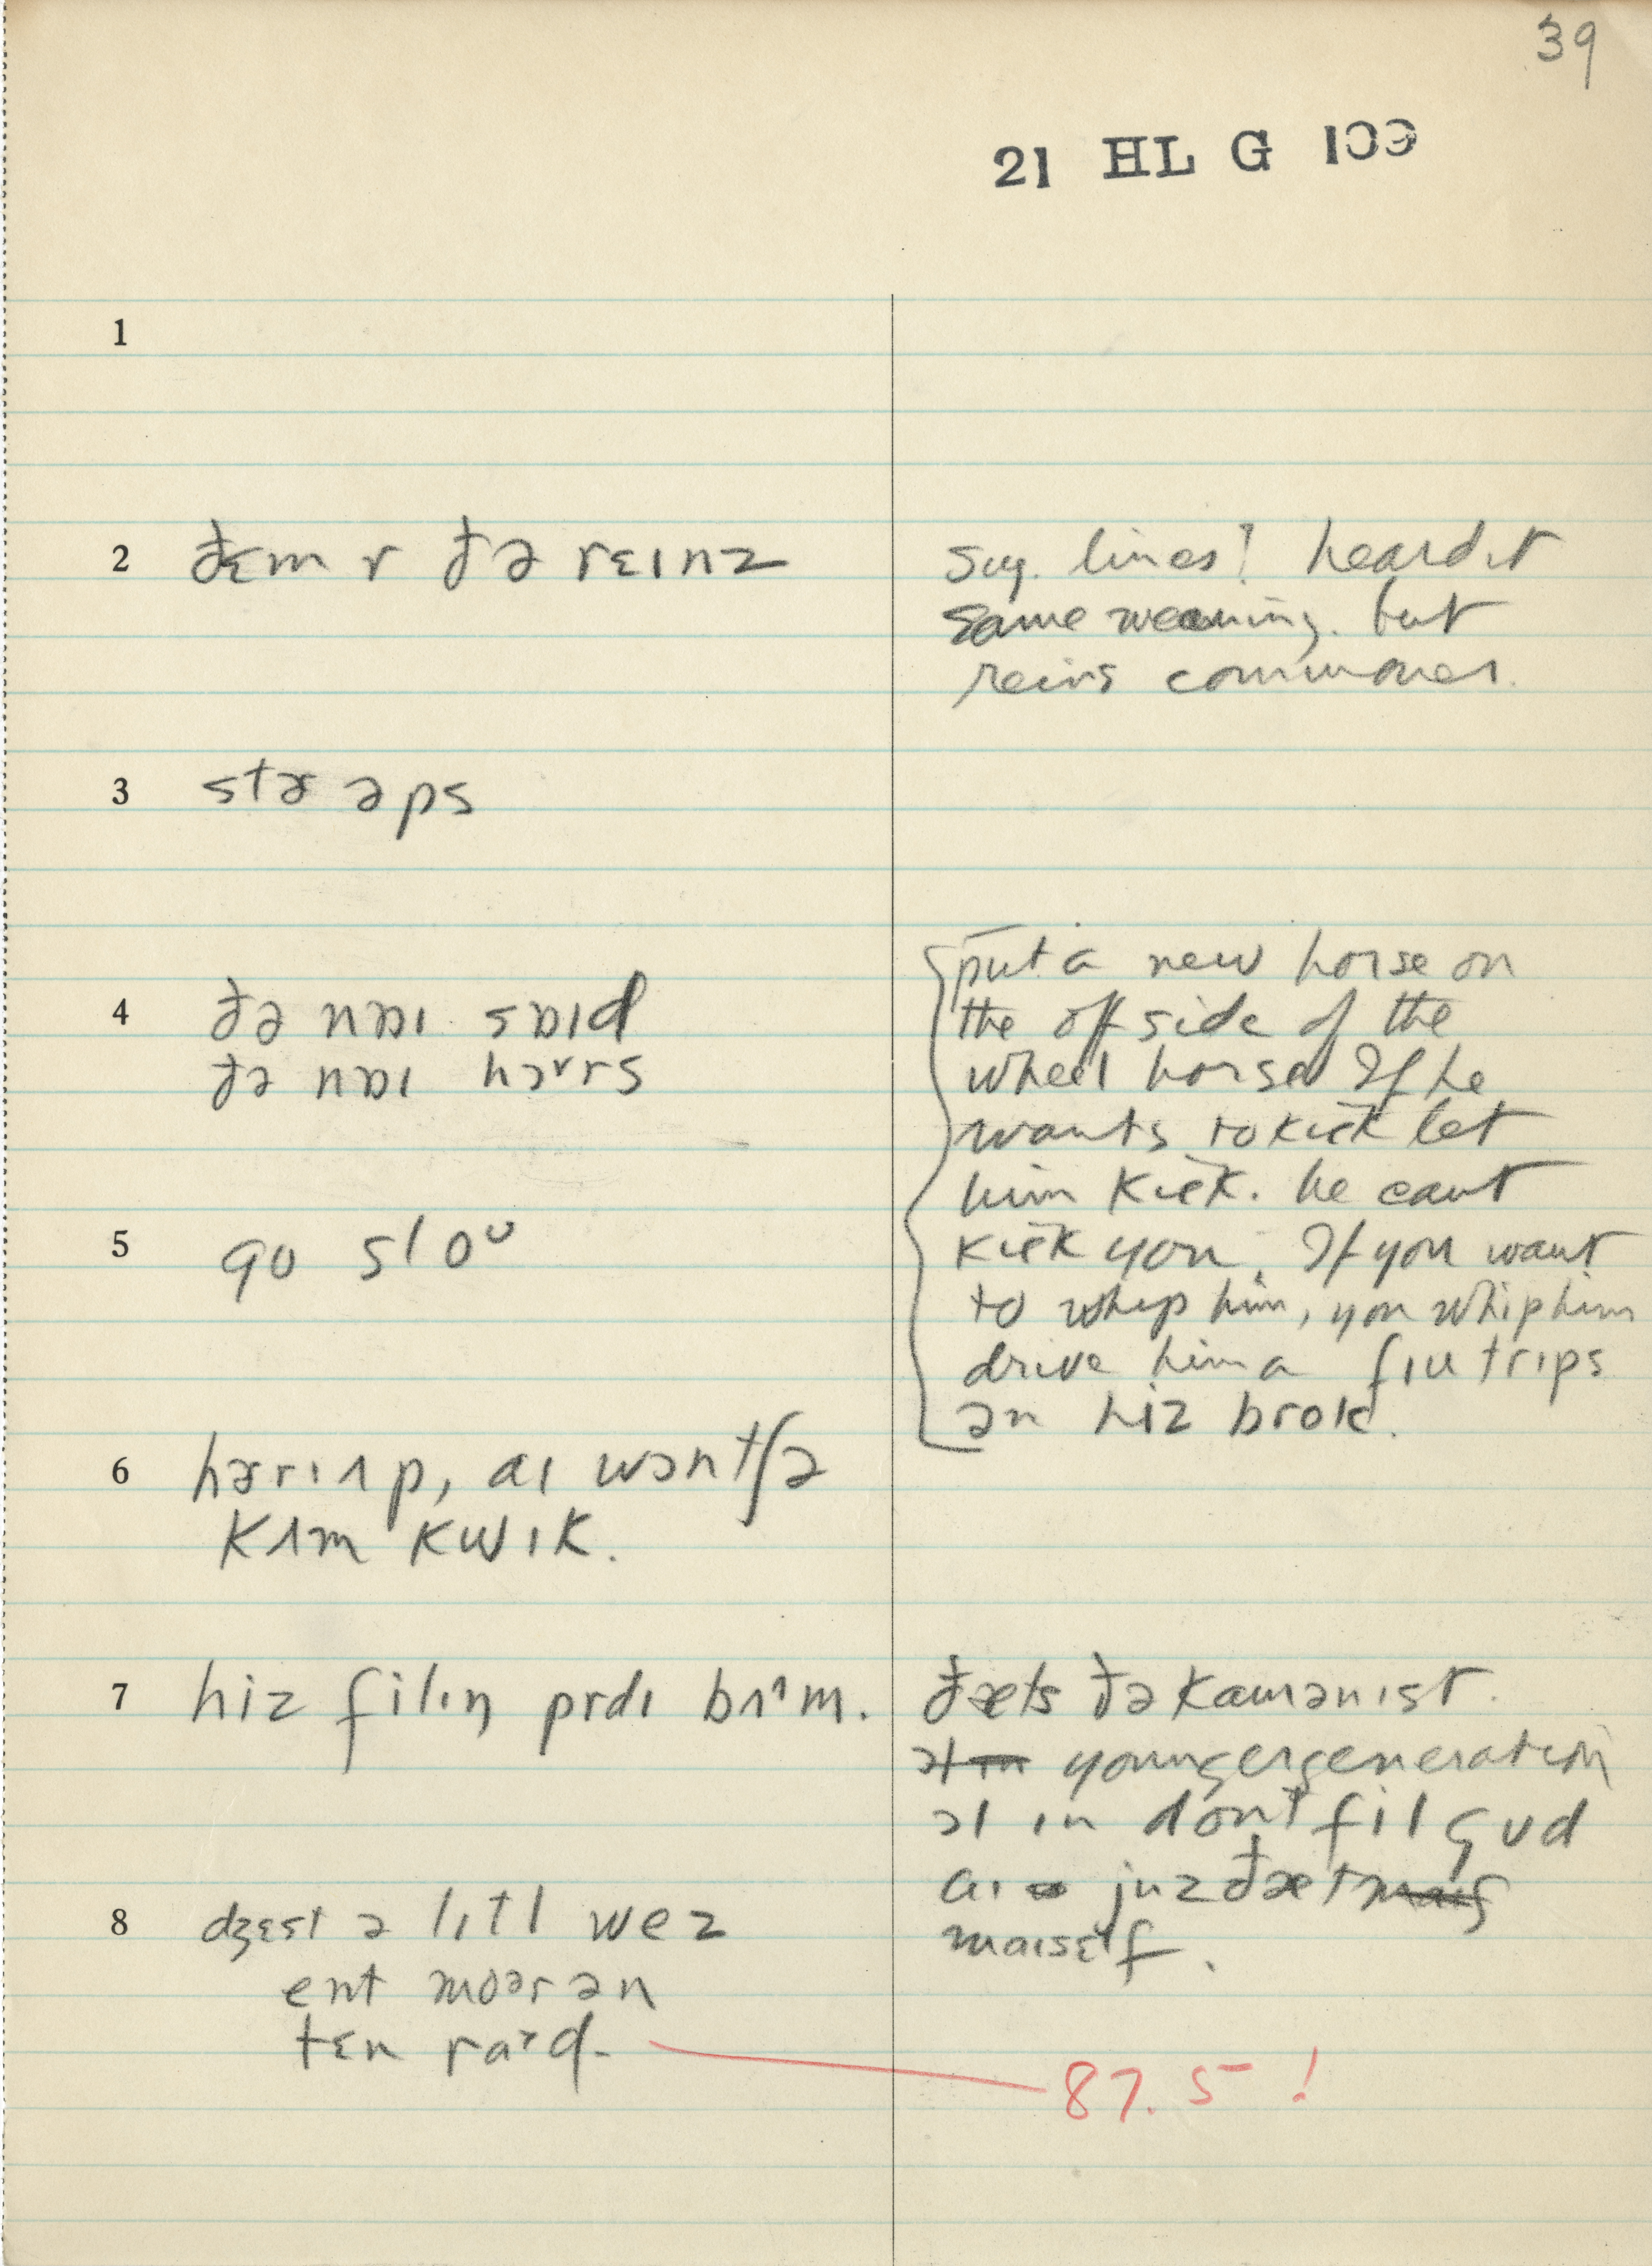 39
21 HL G 133
1
2 ðɛm r ðə rɛɪnz
sug. lines? heard it
same meaning. but
reins commoner.
3 stɚəps
4 ðə nɒɪ sɒɪd
ðə nɒɪ hɔrs
put a new horse on
the off side of the
wheel horse If he
wants to kick let
him kick. he cant
kick you. If you want
to whip him, you whip him
drive him a fɪu trips
ən hiz brok.
5 go sloᶷ
6 hɚrɪʌp, aɪ wənt
kʌm kwɪk.
7 hiz filɪŋ prdɪ bʌᵊm.
ðæts ðə kamənɪst.
younger generation
əl ɪn dont fil gud
aɪ juz ðæt
maɪsɛlf.
8 dʒɛst ə lɪtl wez
ent moər ən
tɛn
87.5!